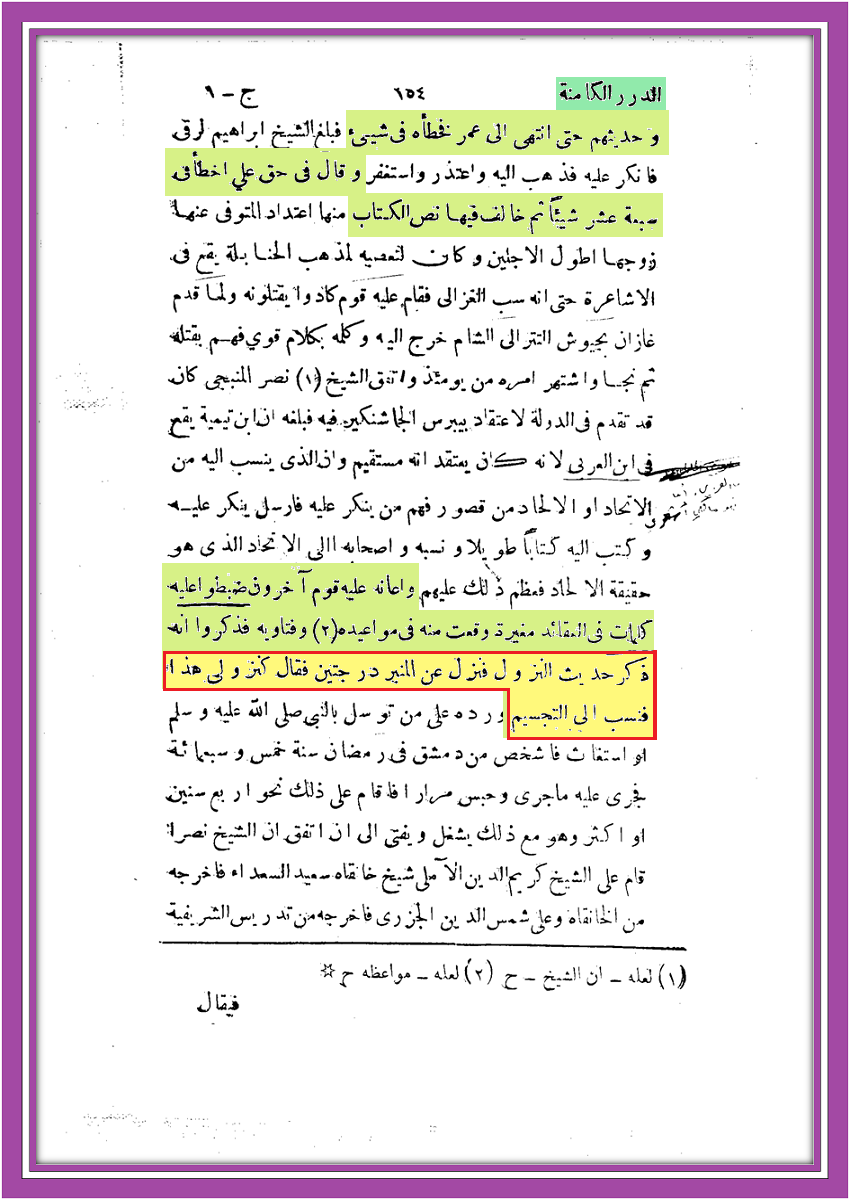 الدرر الكامنة ١٥٤ ج – ١
وحديثهم حتى انتهى الى عمر فخطأه فى شيئ فبلغ الشيخ ابراهيم الرقى
فانكر عليه فذهب اليه واعتذر واستغفر وقال فى حق علي اخطأ فى
سبعة عشر شيئاً ثم خالف فيها نص الكتاب منها اعتداد المتوفى عنها
زوجها اطول الاجلين وكان لتعصبه لمذهب الحنابلة يقع فى
الاشاعرة حتى انه سب الغزالى فقام عليه قوم كادوا يقتلونه ولما قدم
غازان بجيوش التتر الى الشام خرج اليه وكلمه بكلام قوي فهم بقتله
ثم نجا واشتهر امره من يومئذ واتفق الشيخ (١) نصر المنبجى كان
قد تقدم فى الدولة لاعتقاد بيبرس الجاشنكير فيه فبلغه ان ابن تيمية يقع
فى ابن العربى لانه كان يعتقد انه مستقيم وان الذى ينسب اليه من
الاتحاد او الالحاد من قصور فهم من ينكر عليه فارسل ينكر عليه
وكتب اليه كتاباً طويلا ونسبه واصحابه االى الاتحاد الذى هو
حقيقة الالحاد فعظم ذلك عليهم واعانه عليه قوم آخرون ضبطوا عليه
كلمات فى العقائد مغيرة وقعت منه فى مواعيده (٢) وفتاويه فذكروا انه
ذكر حديث النزول فنزل عن المنبر درجتين فقال كنزولى هذا
فنسب الى التجسيم ورده على من توسل بالنبي صلى الله عليه وسلم
او استغاث فاشخص من دمشق فى رمضان سنة خمس وسبعمائة
فجرى عليه ماجرى وحبس مرارا فاقام على ذلك نحو اربع سنين
او اكثر وهو مع ذلك يشغل ويفتى الى ان اتفق ان الشيخ نصرا
قام على الشيخ كريم الدين الآملى شيخ خانقاه سعيد السعداء فاخرجه
من الخانقاه وعلى شمس الدين الجزرى فاخرجه من تدريس الشريفية
(١) لعله – ان الشيخ – ح (٢) لعله – مواعظه ح ☆
فيقال